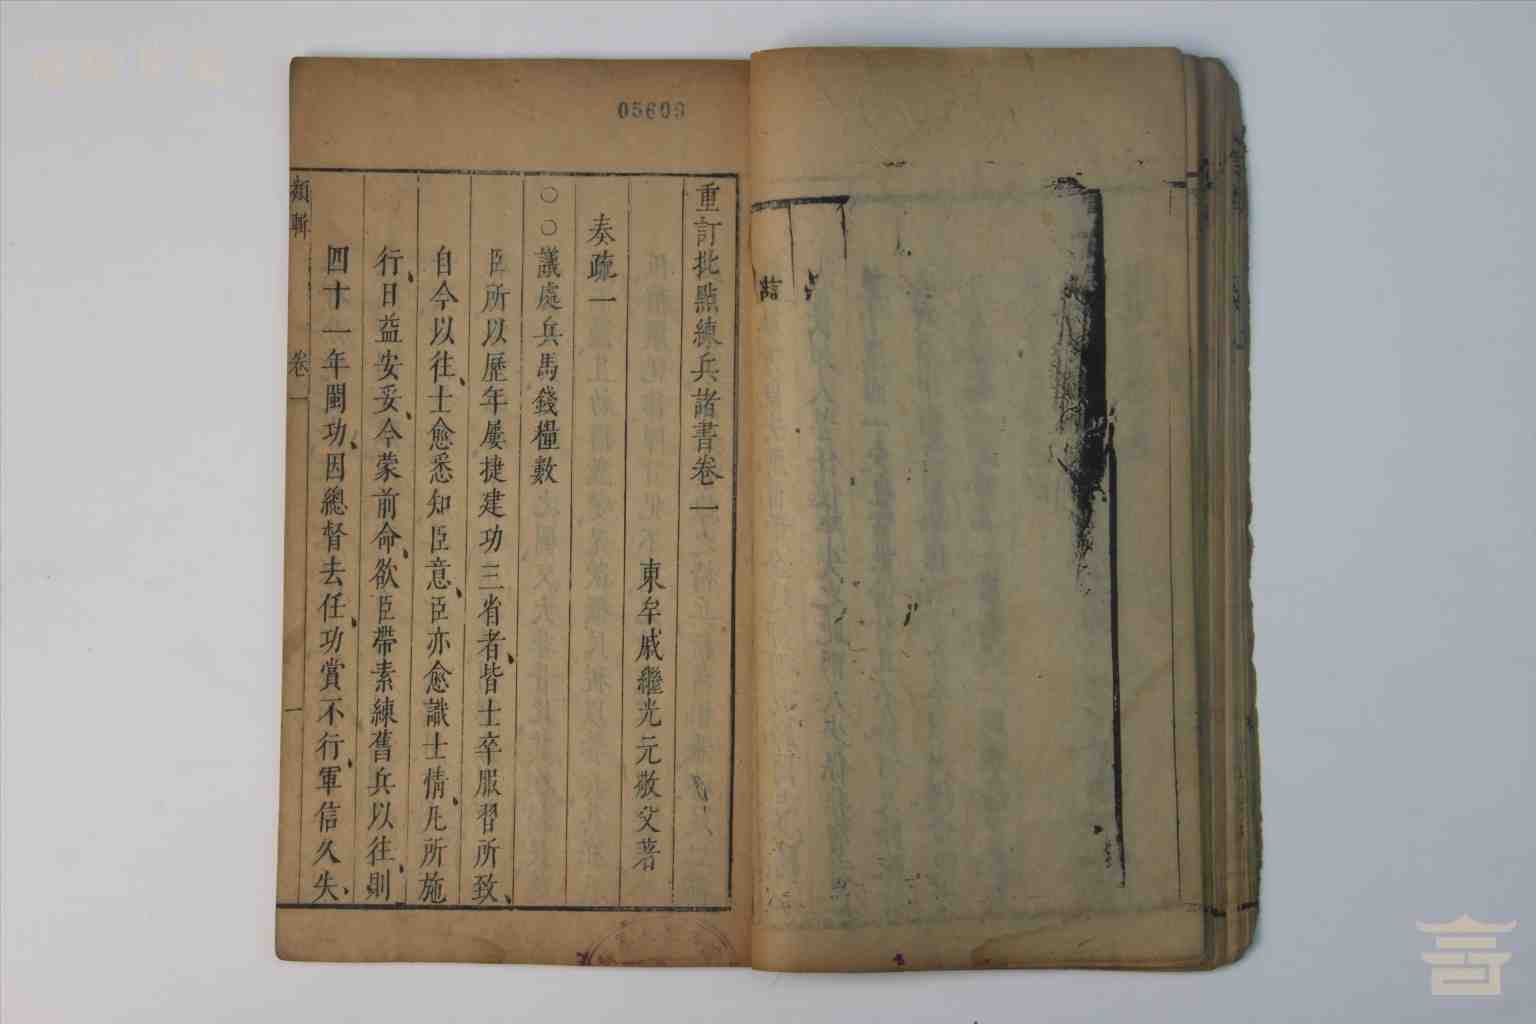 05609
重訂批點練兵諸書卷一
東牟戚繼光元敬父著
奏疏一
○○議處兵馬錢糧數
臣所以歷年屢捷建功三省者、皆士卒服習所致、
自今以往、士愈悉知臣意、臣亦愈識士情、凡所施
行、日益安妥、今蒙前命、欲臣帶素練舊兵以往、則
四十一年閩功、因總督去任、功賞不行、軍信久失、
類輯
卷一
一